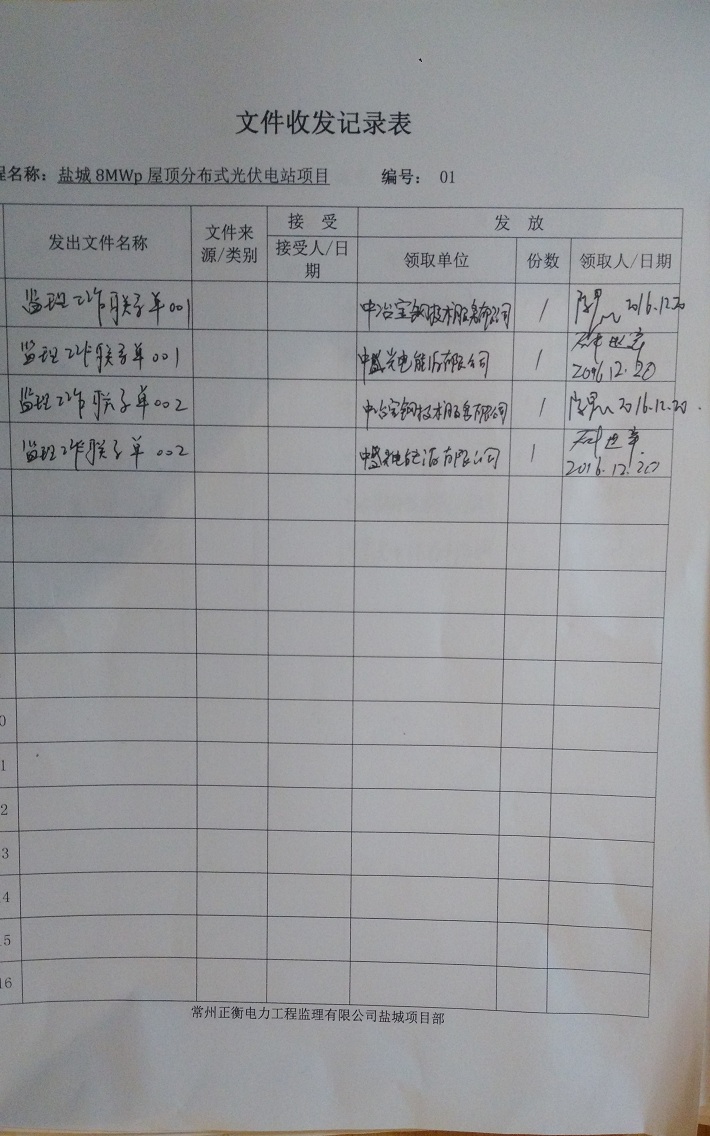 文件收发记录表
程名称：盐城 8MWp 屋顶分布式光伏电站项目 编号： 01
接 受 发 放
发出文件名称 文件来源/类别 接受人/日期 领取单位 份数 领取人/日期
监理工作联系单001 中冶宝钢技术服务有限公司 1 2016.12.20
监理工作联系单001 中盛光电能源有限公司 1
2016.12.20
监理工作联系单002 中冶宝钢技术服务有限公司 1 2016.12.20.
监理工作联系单002 中盛光电能源有限公司 1
2016.12.20
0
1
2
3
4
15
16
常州正衡电力工程监理有限公司盐城项目部